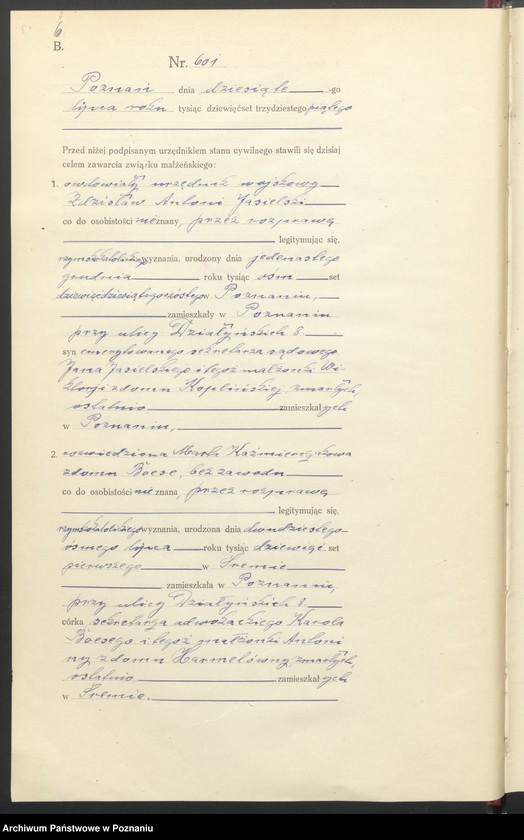 6
B.
Nr. 601
Poznań dnia dziesiąte -go
lipca roku tysiąc dziewięćset trzydziestego piątego
Przed niżej podpisanym urzędnikiem stanu cywilnego stawili się dzisiaj
celem zawarcia związku małżeńskiego:
1. owdowiały urzędnik wojskowy
Zdzisław Antoni Jasielski
co do osobistości nieznany, przez rozprawę
legitymując się,
rzymskokatolickiego wyznania, urodzony dnia jedenastego
grudnia roku tysiąc ośm set
dziewięćdziesiątego szóstego w Poznaniu,
zamieszkały w Poznaniu
przy ulicy Działyńskich 8.
syn emerytowanego sekretarza sądowego
Jana Jasielskiego i tegoż małżonki Wi-
ktorji z domu Koplińskiej, zmarłych,
ostatnio zamieszkałych
w Poznaniu,
2. rozwiedziona Marta Kaźmierczakowa
z domu Boese, bez zawodu
co do osobistości nie znana, przez rozprawę
legitymując się,
rzymskokatolickiego wyznania, urodzona dnia dwudziestego
ósmego lipca roku tysiąc dziewięć set
pierwszego w Śremie
zamieszkała w Poznaniu,
przy ulicy Działyńskich 8.
córka sekretarza adwokackiego Karola
Boesego i tegoż małżonki Antoni
ny z domu Harmelówny, zmarłych,
ostatnio zamieszkałych
w Śremie.
Archiwum Państwowe w Poznaniu